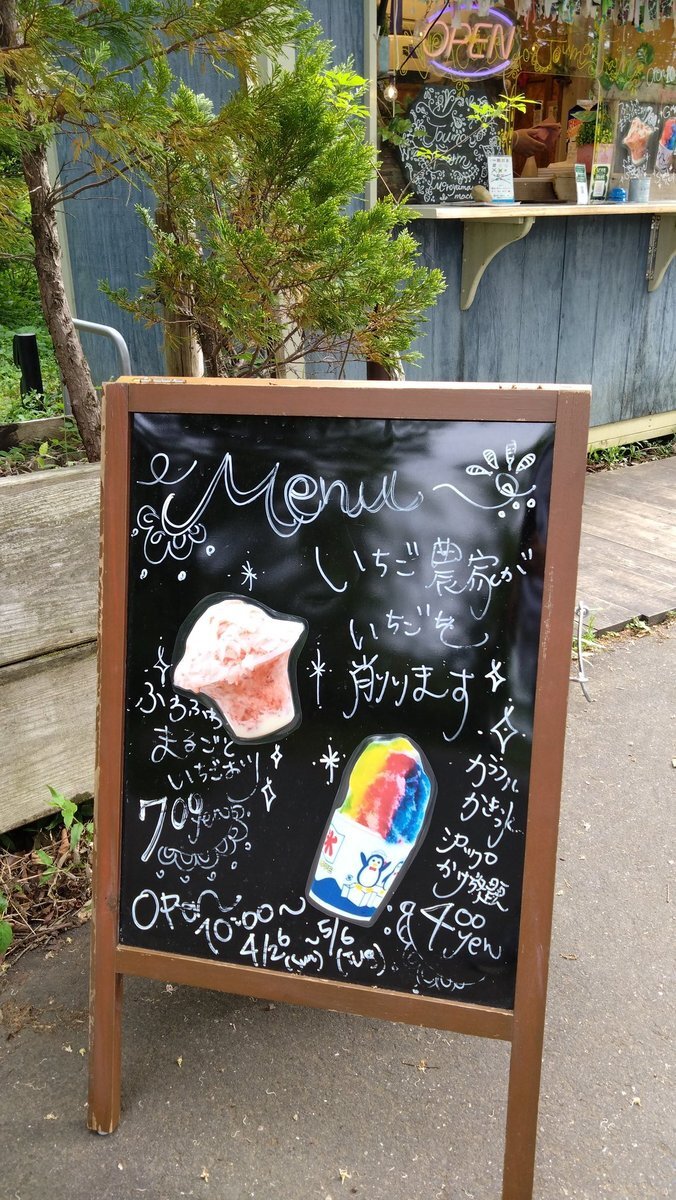 OPEN
Menu
いちご農家が
いちごを
削ります
ふわふわ
まるごと
いちごおり
700yen
カラフル
かき氷
シロップ
かけ放題
400
yen
氷
OPEN 10:00～
4/26(sun)～5/6(Tue)